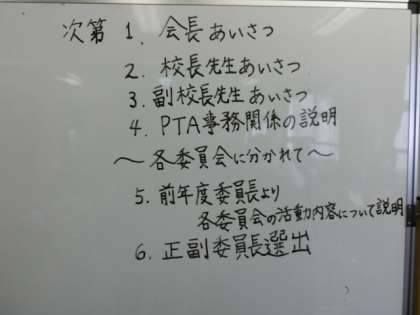 次第 1. 会長あいさつ
2. 校長先生あいさつ
3. 副校長先生あいさつ
4. PTA事務関係の説明
～各委員会に分かれて～
5. 前年度委員長より
各委員会の活動内容について説明
6. 正副委員長選出